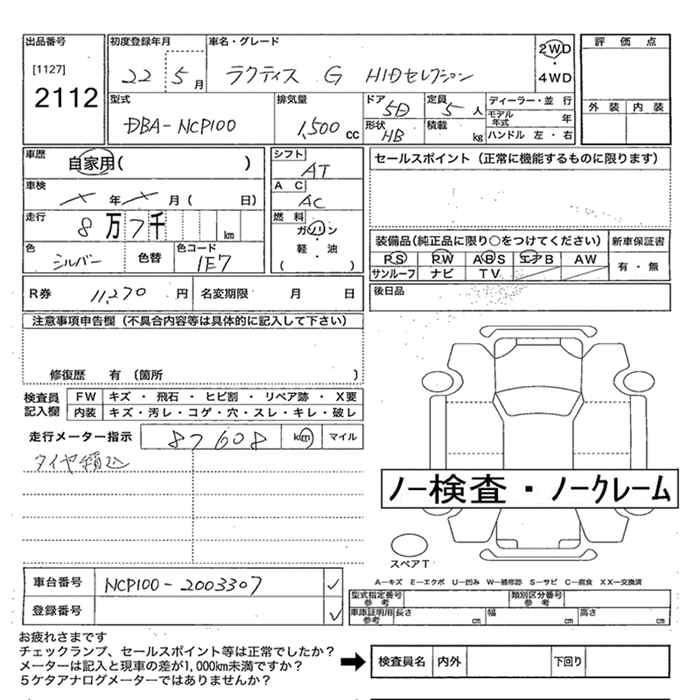 出品番号
[1127]
2112
初度登録年月
22 5月
車名・グレード
ラクティス G HIDセレクション
2WD
・
4WD
評価点
外装 内装
型式
DBA-NCP100
排気量
1,500 cc
ドア
5D
形状
HB
定員
5人
積載
kg
ディーラー・並行
モデル年式 年
ハンドル 左・右
車歴
自家用( )
車検
× 年 × 月( 日)
走行
8万7千 km
色
シルバー
色替
色コード
1E7
シフト
AT
A C
AC
燃料
ガソリン
軽・油
( )
セールスポイント(正常に機能するものに限ります)
装備品(純正品に限り○をつけてください)
新車保証書
PS PW ABS エアB AW
サンルーフ ナビ TV
有・無
R券 11,270円 名変期限 月 日
後日品
注意事項申告欄(不具合内容等は具体的に記入して下さい)
修復歴 有 〔箇所 〕
検査員記入欄
FW キズ・飛石・ヒビ割・リペア跡・X要
内装 キズ・汚レ・コゲ・穴・スレ・キレ・破レ
走行メーター指示 87608 km マイル
タイヤ積込
ノー検査・ノークレーム
スペアT
A−キズ E−エクボ U−凹み W−補修跡 S−サビ C−腐食 XX−交換済
車台番号 NCP100-2003307 ✓
登録番号 ✓
型式指定番号
参考
類別区分番号
参考
車庫証明用
参考
長さ cm 幅 cm 高さ cm
お疲れさまです
チェックランプ、セールスポイント等は正常でしたか?
メーターは記入と現車の差が1,000km未満ですか?
5ケタアナログメーターではありませんか?
検査員名 内外 下回り